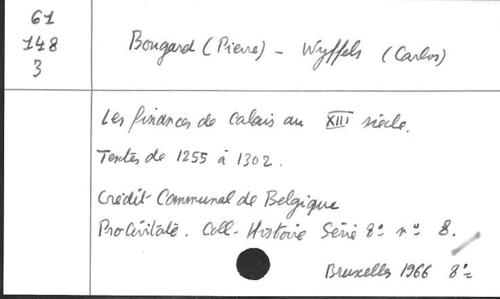 61
148
3
Bougard (Pierre) - Wyffels (Carlos)
Les finances de Calais au XIII siècle.
Textes de 1255 à 1302.
Crédit Communal de Belgique
Pro Civitate. Coll. Histoire Série 8º nº 8.
Bruxelles 1966 8º